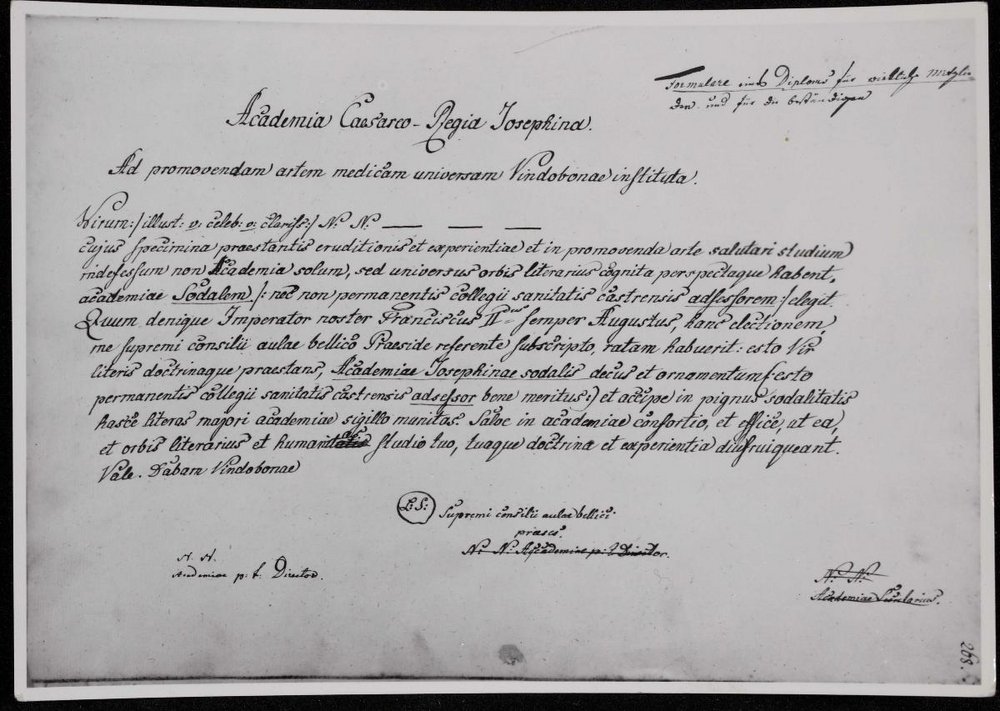 Formulare eines Diploms für wirkliche Mitglie
der. und für die beständigen
Academia Caesareo-Regia Josephina.
Ad promovendam artem medicam universam Vindobonae instituta.
Virum :/ illust: v: celeb: v: clariss: / N: N:
cujus specimina praestantis eruditionis et experientiae et in promovenda arte salutari studium
indefessum non Academia solum, sed universus orbis literarius cognita perspectaque habent,
academiae Sodalem /: nec non permanentis collegii sanitatis castrensis adsessorem :/ elegit
Quum denique Imperator noster Franciscus IIdus semper Augustus, hanc electionem,
me supremi consilii aulae bellico Praeside referente subscripto, ratam habuerit: esto Vir
literis doctrinaque praestans, Academiae Josephinae sodalis decus et ornamentum /: esto
permanentis collegii sanitatis castrensis adsessor bene meritus :/ et accipe in pignus sodalitatis
hasce literas majori academiae sigillo munitas. Salve in academiae consortio, et effice, ut ea,
et orbis literarius et humanitas studio tuo, tuaque doctrina et experientia diu fruiqueant.
Vale. Dabam Vindobonae
L: S:
Supremi consilii aulae bellici
praeses.
N: N: Academiae p: t: Director.
N. N.
Academiae p. t. Director.
N: N:
Academiae Secretarius.
268.